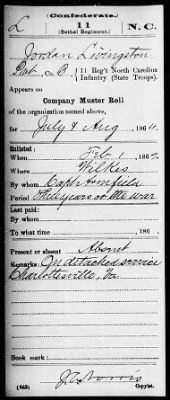 (Confederate.)
L 11 N. C.
(Bethel Regiment.)
Jordan Livingston
Pvt, Co. B, 11 Reg't North Carolina
Infantry (State Troops).
Appears on
Company Muster Roll
of the organization named above,
for July & Aug, 1864.
Enlisted:
When Feb 1, 1862
Where Wilkes
By whom Capt Armfield
Period Three years or the war
Last paid:
By whom
To what time , 186
Present or absent Absent
Remarks: On detached service
Charlottesville, Va
Book mark:
(642)
Copyist.